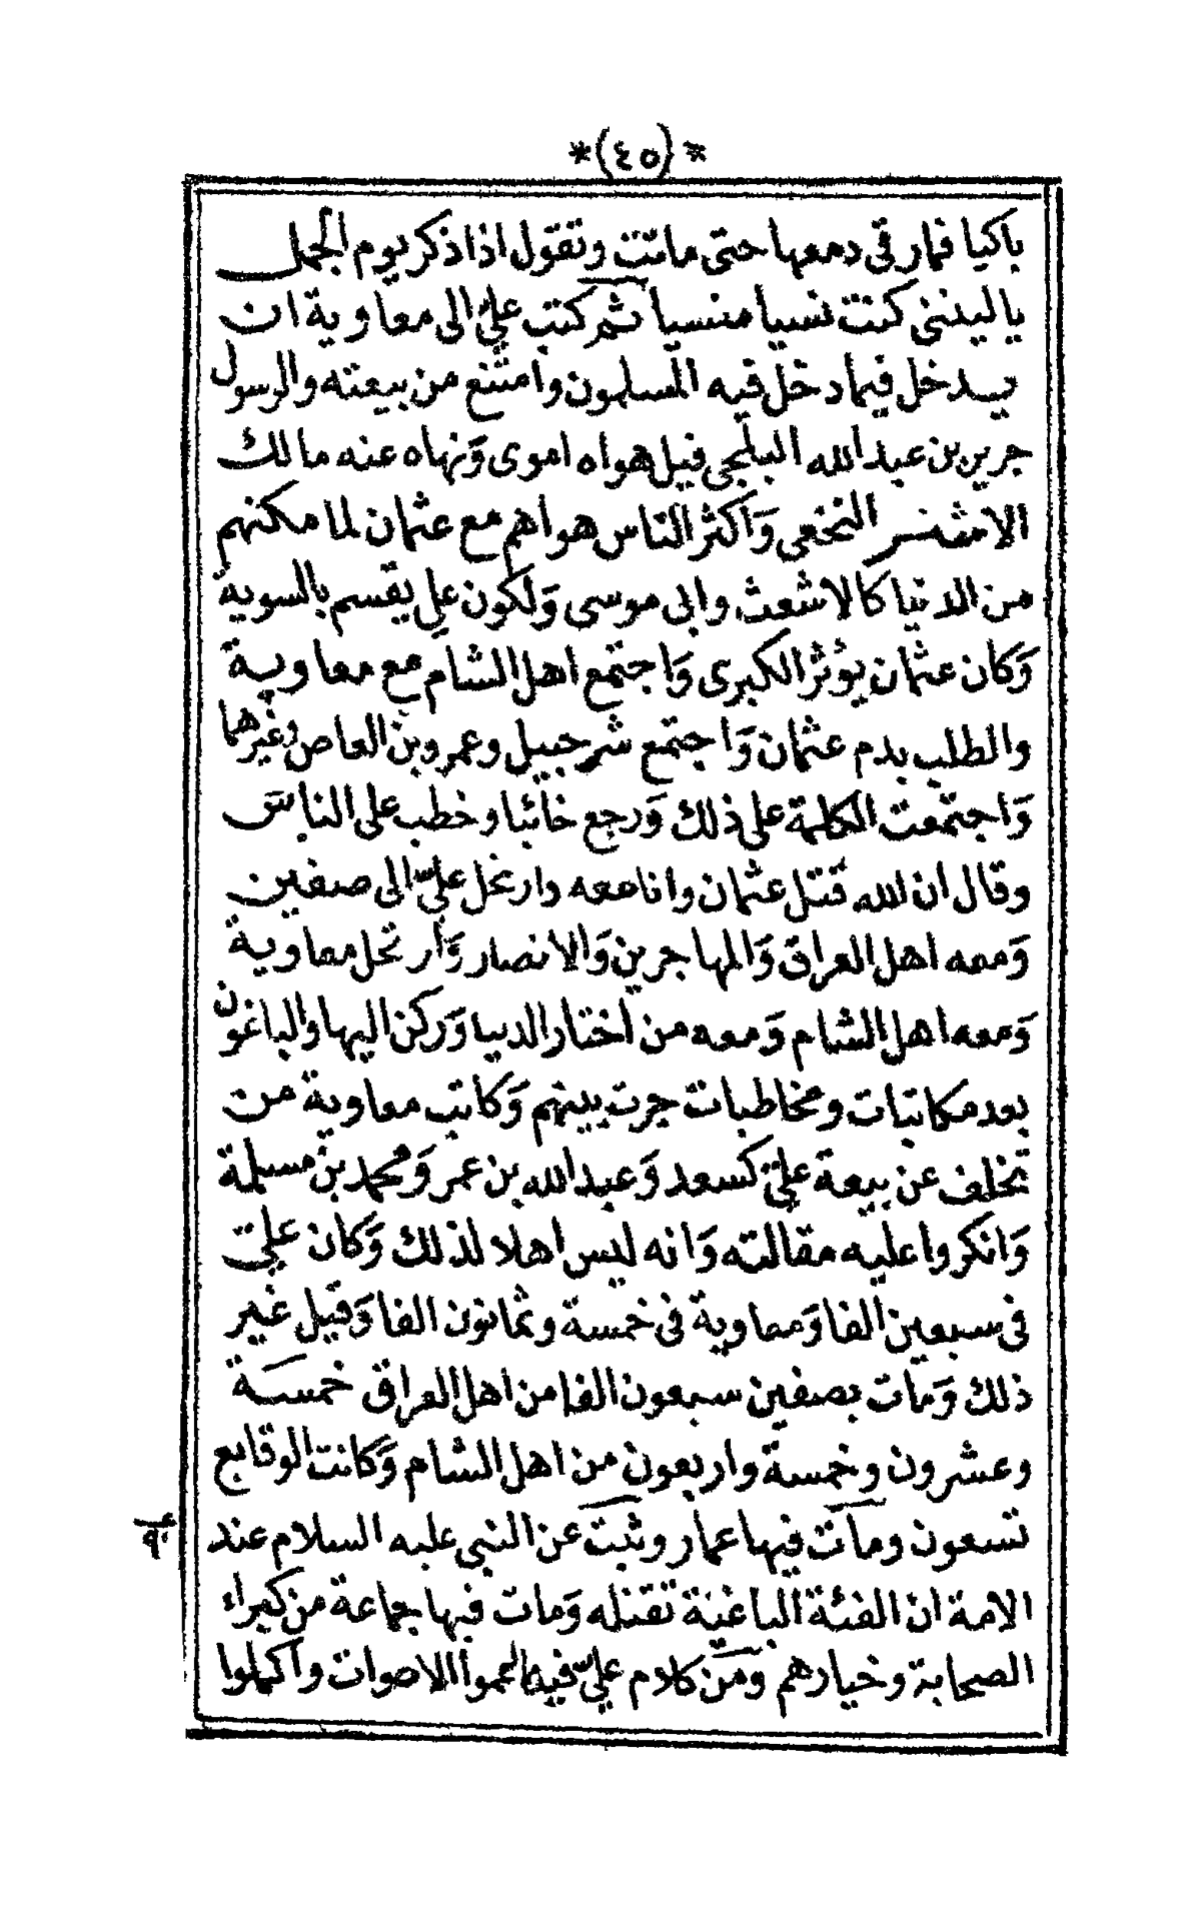 *(٤٥)*
باكيا فمارقى دمعها حتى ماتت وتقول اذا ذكر يوم الجمل
ياليتنى كنت نسيا منسيا ثم كتب علىّ الى معاوية ان
يدخل فيما دخل فيه المسلمون وامتنع من بيعته والرسول
جرير بن عبد الله البجلى قيل هواه اموى وَنهاه عنه مالك
الاشتر النخعى وَاكثر الناس هواهم مع عثمان لما مكنهم
من الدنيا كالاشعث وابى موسى وَلكون على يقسم بالسوية
وَكان عثمان يؤثر الكبرى وَاجتمع اهل الشام مع معاوية
والطلب بدم عثمان وَاجتمع شرحبيل وعمرو بن العاص وغيرهما
وَاجتمعت الكلمة على ذلك وَرجع خائبا وخطب على الناس
وقال ان الله قتل عثمان وانا معه وارتحل علىّ الى صفين
وَمعه اهل العراق وَالمهاجرين وَالانصار وَارتحل معاوية
وَمعه اهل الشام وَمعه من اختار الدنيا وَركن اليها والباغون
بعد مكاتبات ومخاطبات جرت بينهم وَكاتب معاوية من
تخلف عن بيعة علىّ كسعد وَعبد الله بن عمر وَمحمد بن مسلمة
وَانكروا عليه مقالته وَانه ليس اهلا لذلك وَكان علىّ
فى سبعين الفا وَمعاوية فى خمسة وثمانون الفا وَقيل غير
ذلك وَمات بصفين سبعون الفا من اهل العراق خمسة
وعشرون وخمسة واربعون من اهل الشام وَكانت الوقايع
تسعون ومات فيها عمار وثبت عن النبى عليه السلام عند
الامة ان الفئة الباغية تقتله وَمات فيها جماعة من كبراء
الصحابة وخيارهم وَمن كلام علىّ فيها عموا الاصوات واكملوا